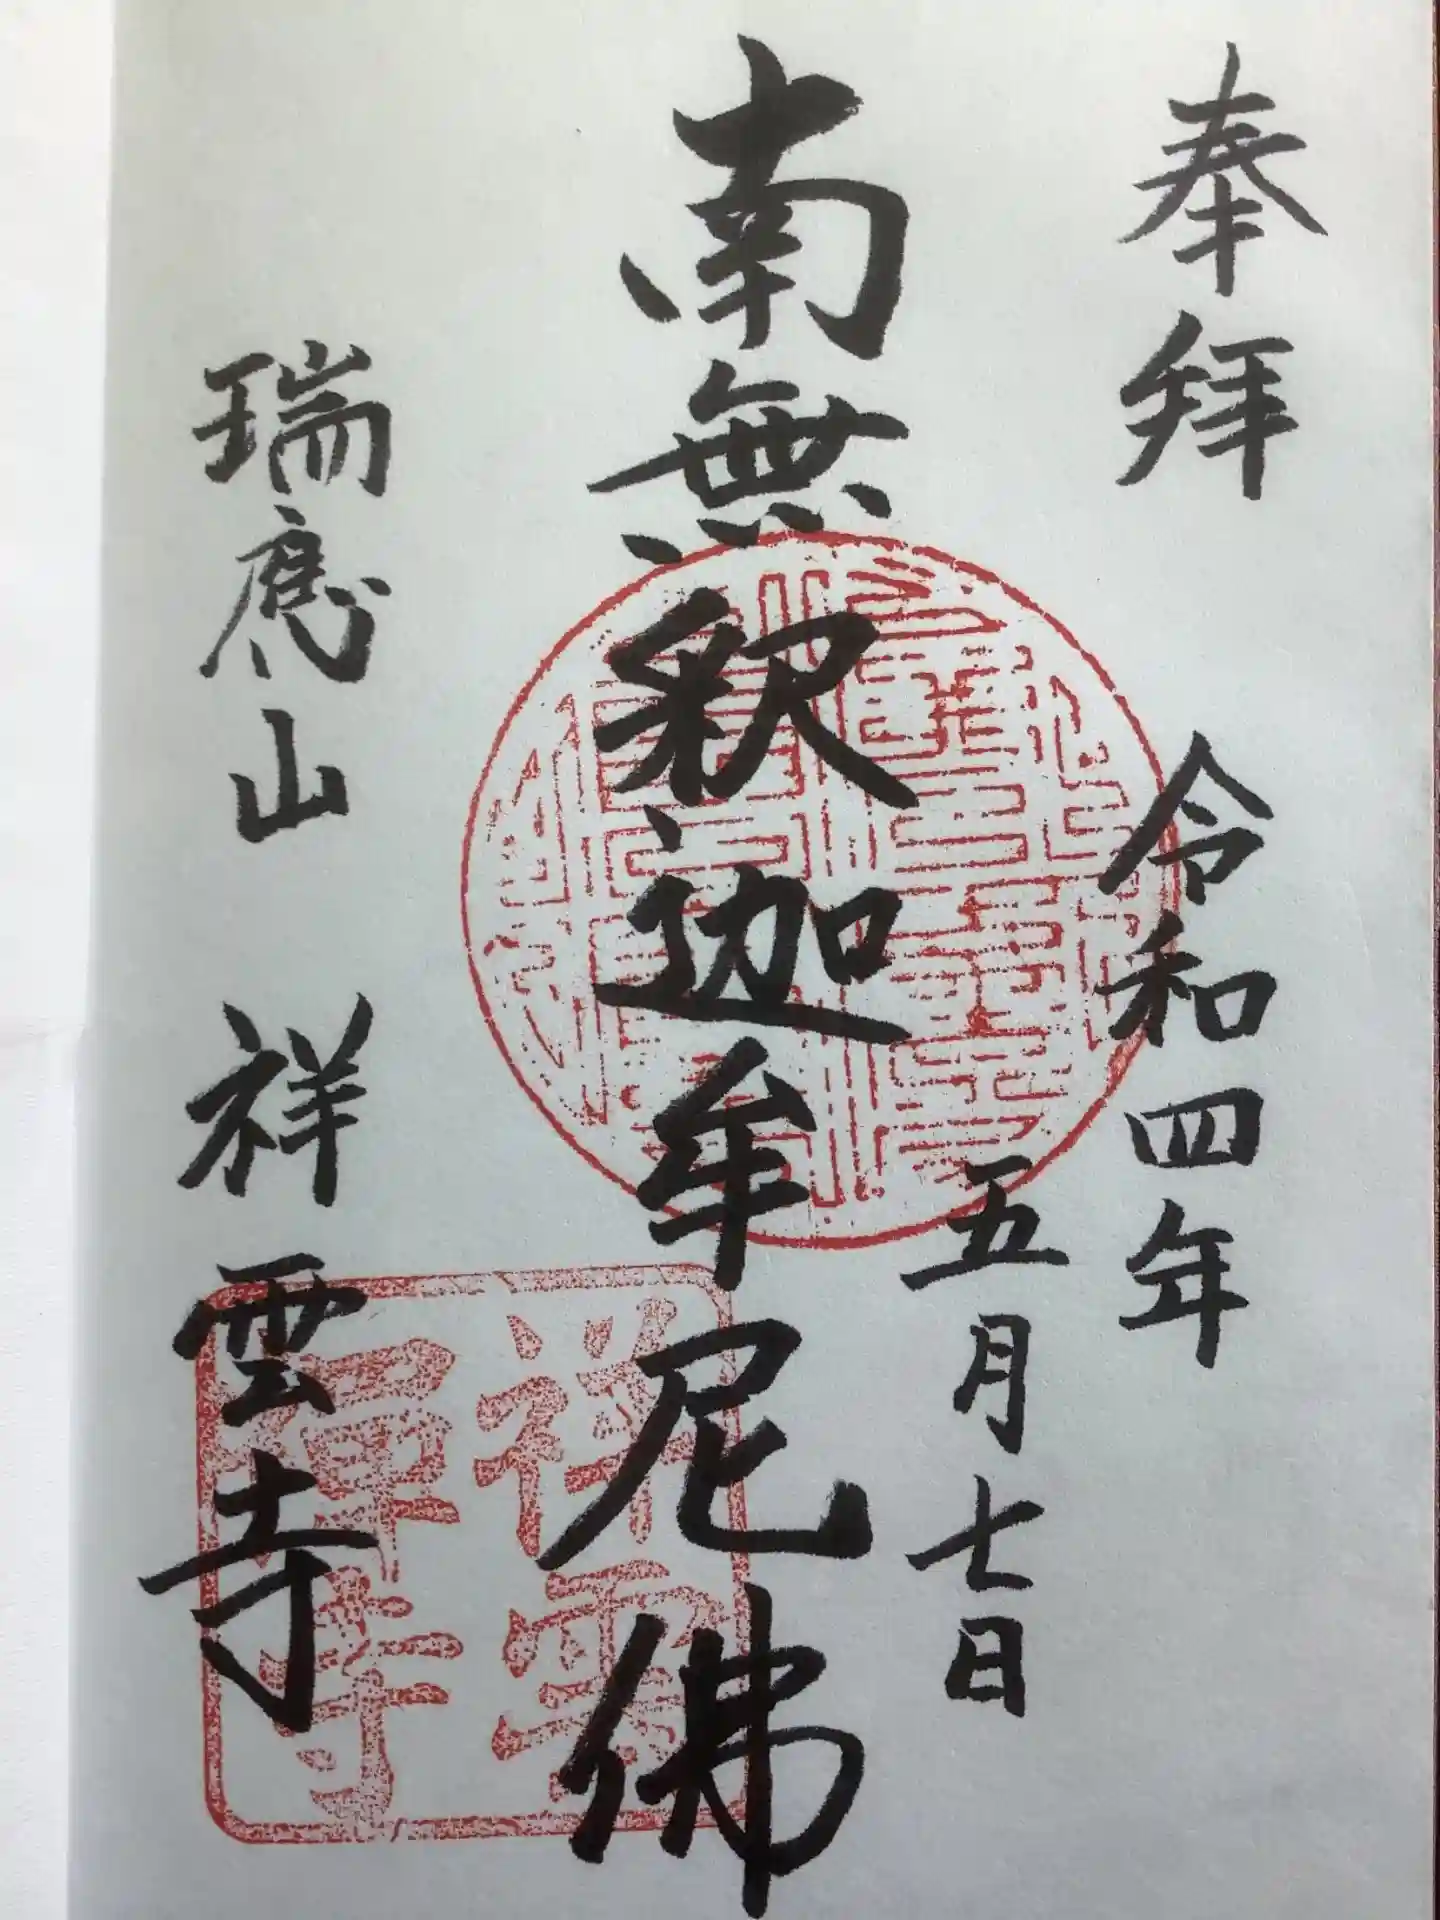 奉拜
令和四年
五月七日
南無釈迦牟尼佛
瑞應山 祥雲寺
祥雲
禅寺